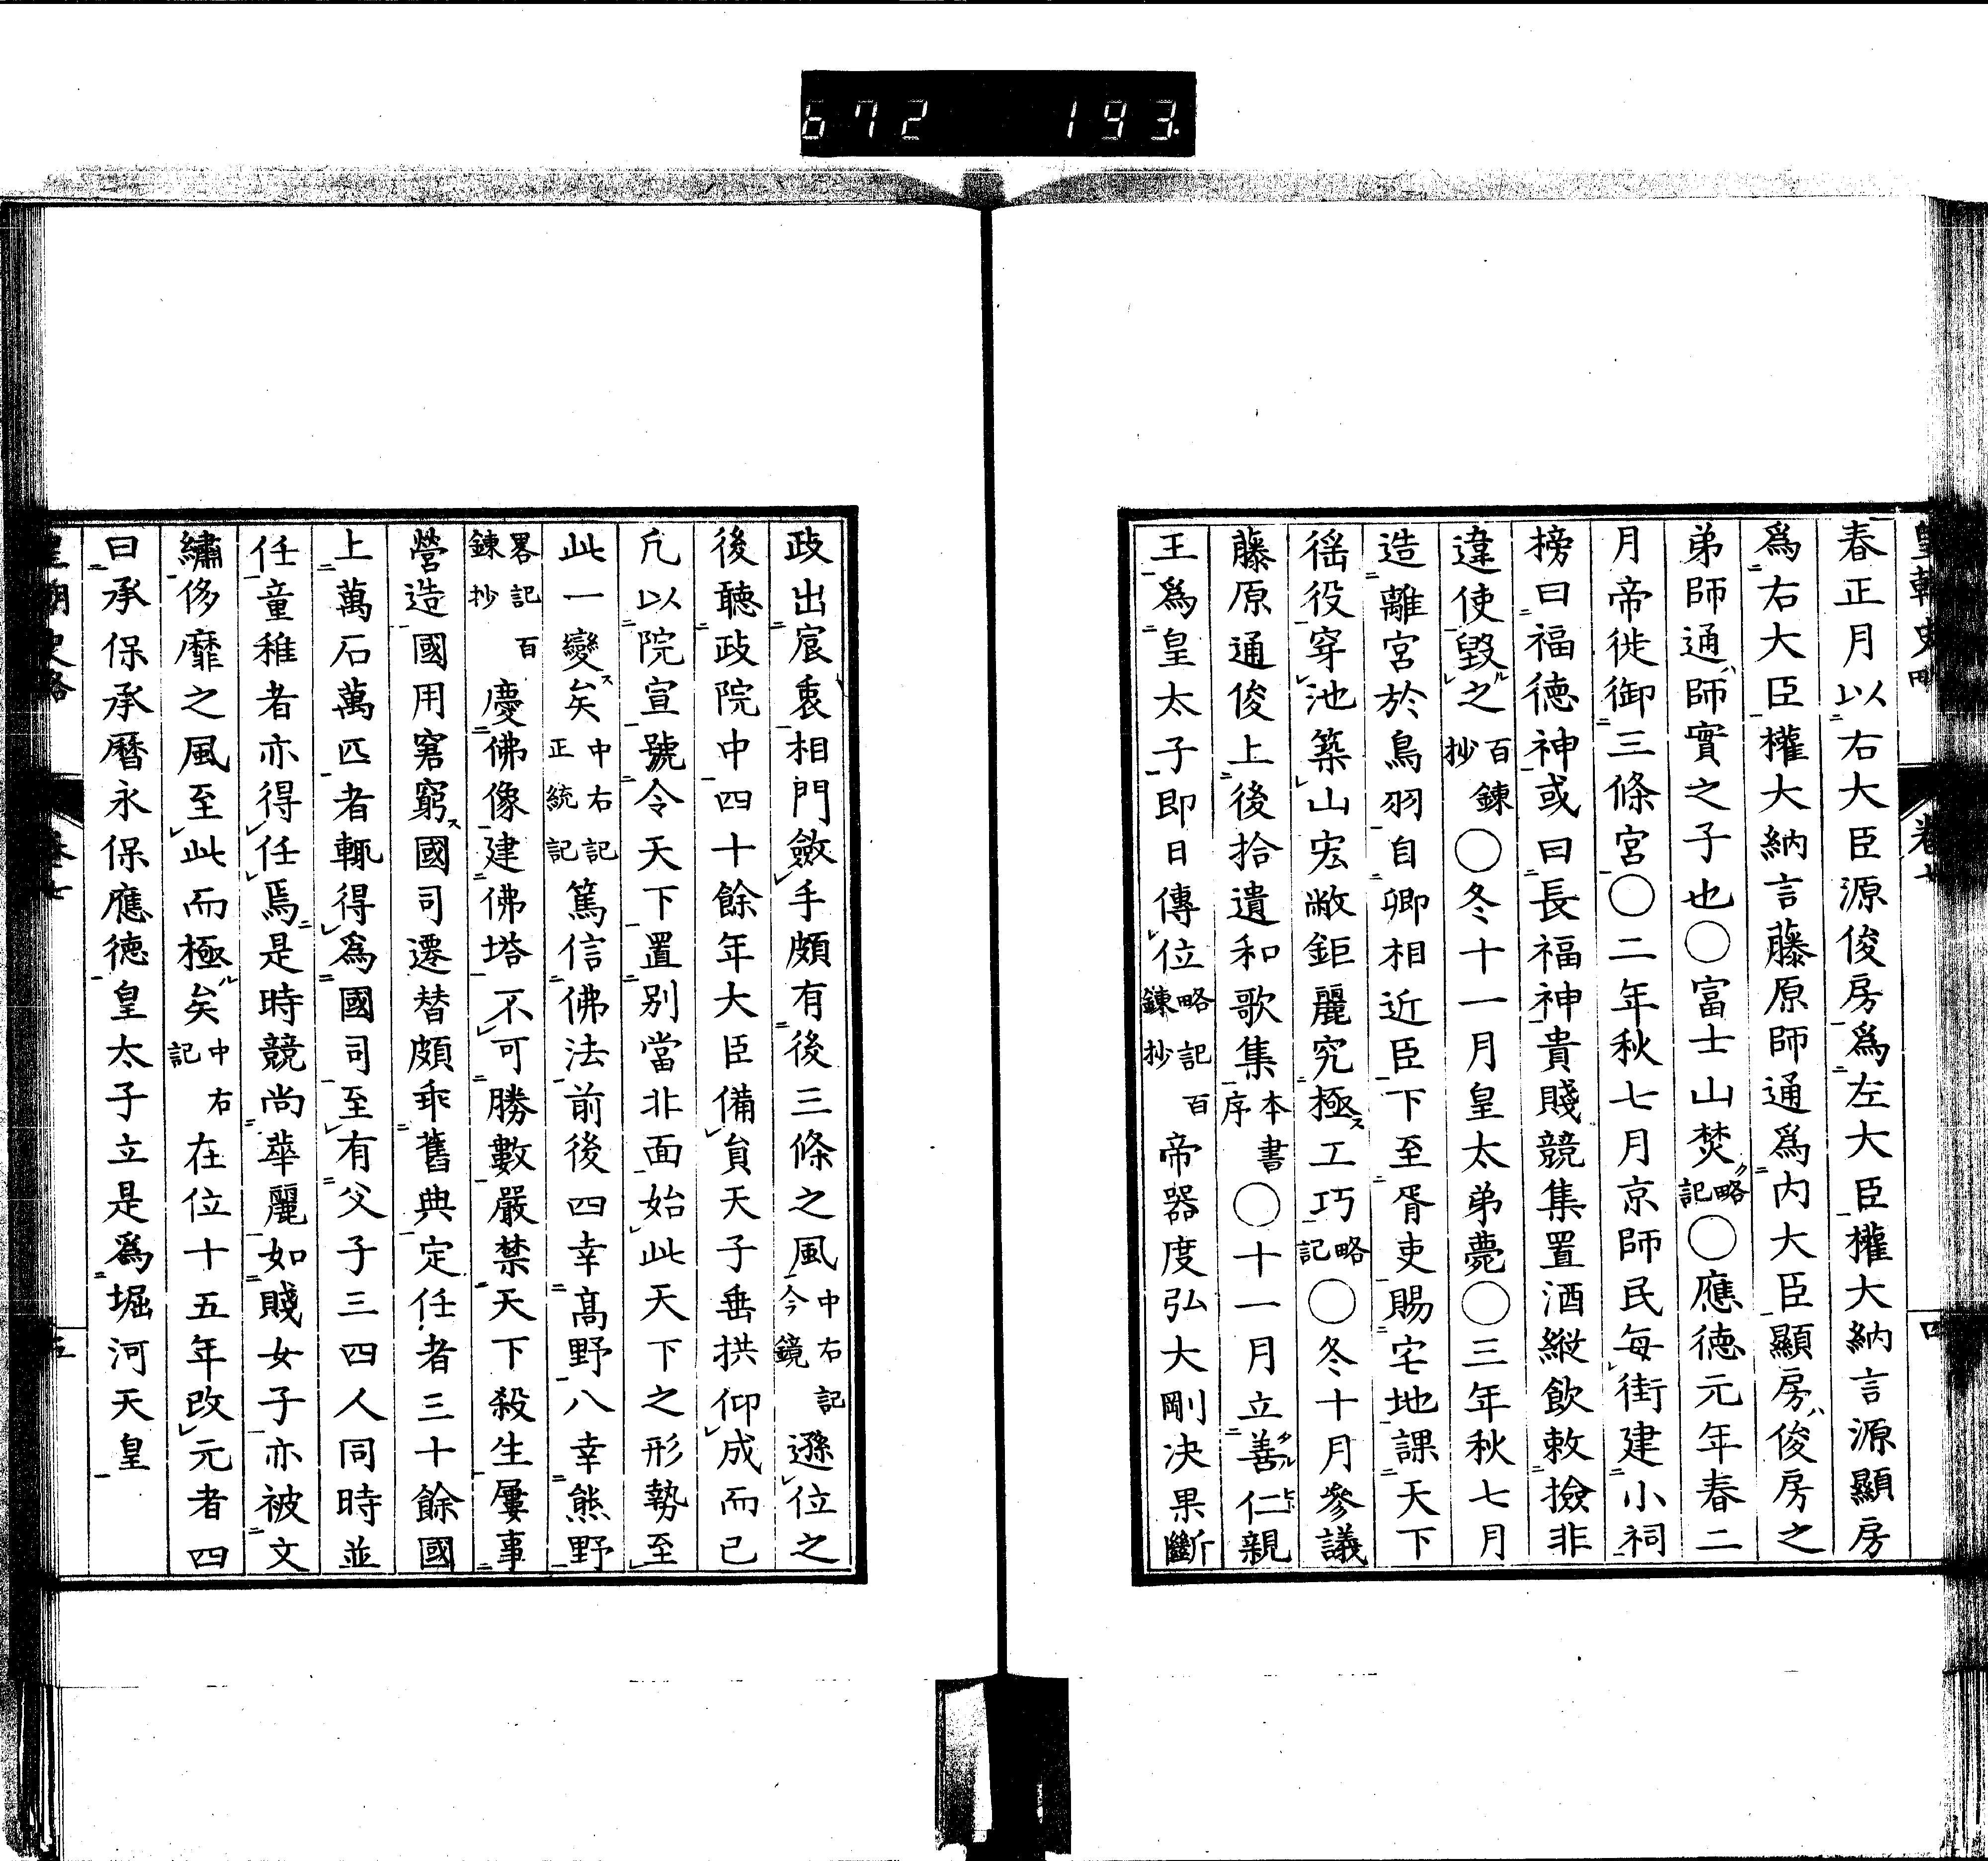 672 193.
皇朝史略 卷七 四
春正月以右大臣源俊房爲左大臣權大納言源顯房
爲右大臣權大納言藤原師通爲内大臣顯房ハ俊房之
弟師通ハ師實之子也〇富士山焚ク略記〇應德元年春二
月帝徙御三條宮〇二年秋七月京師民每街建小祠
榜曰福德神或曰長福神貴賤競集置酒縱飲敕撿非
違使毀ル之百鍊抄〇冬十一月皇太弟薨〇三年秋七月
造離宮於鳥羽自卿相近臣下至胥吏賜宅地課天下
徭役穿池築山宏敞鉅麗究極ス工巧略記〇冬十月參議
藤原通俊上後拾遺和歌集本書序〇十一月立善仁親
王爲皇太子即日傳位略記百鍊抄帝器度弘大剛决果斷
政出宸衷相門斂手頗有後三條之風中右記今鏡遜位之
後聽政院中四十餘年大臣備員天子垂拱仰成而已
凢以院宣號令天下置别當非面始此天下之形勢至
此一變ス矣中右記正統記篤信佛法前後四幸高野八幸熊野
畧記百鍊抄慶佛像建佛塔不可勝數嚴禁天下殺生屢事
營造國用窘窮ス國司遷替頗乖舊典定任者三十餘國
上萬石萬匹者輒得爲國司至有父子三四人同時並
任童稚者亦得任焉是時競尚華麗如賤女子亦被文
繡侈靡之風至此而極ル矣中右記在位十五年改元者四
曰承保承曆永保應德皇太子立是爲堀河天皇
皇朝史略 卷七 五